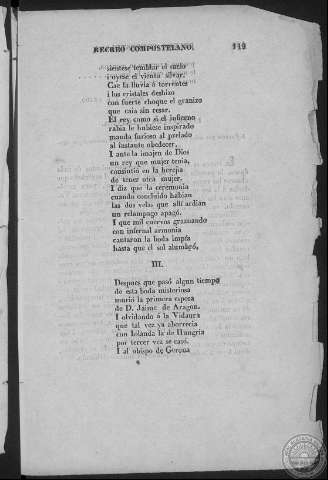 RECREO COMPOSTELANO. 119
sientese temblar el suelo
i oyese el viento silvar.
Cae la lluvia á torrentes
i los cristales deshizo
con fuerte choque el granizo
que caia sin cesar.
El rey como si el infierno
rabia le hubiese inspirado
manda furioso al prelado
al instante obedecer.
I ante la imajen de Dios
un rey que mujer tenia,
consintió en la herejia
de tener otra mujer.
I diz que la ceremonia
cuando concluido habian
las dos velas que alli ardian
un relampago apagó.
I que mil cuervos graznando
con infernal armonia
cantaron la boda impía
hasta que el sol alumbró.
III.
Despues que pasó algun tiempo
de esta boda misteriosa
murió la primera esposa
de D. Jaime de Aragon.
I olvidando á la Vidaura
que tal vez ya aborrecia
con Iolanda la de Hungria
por tercer vez se casó.
I al obispo de Gerona